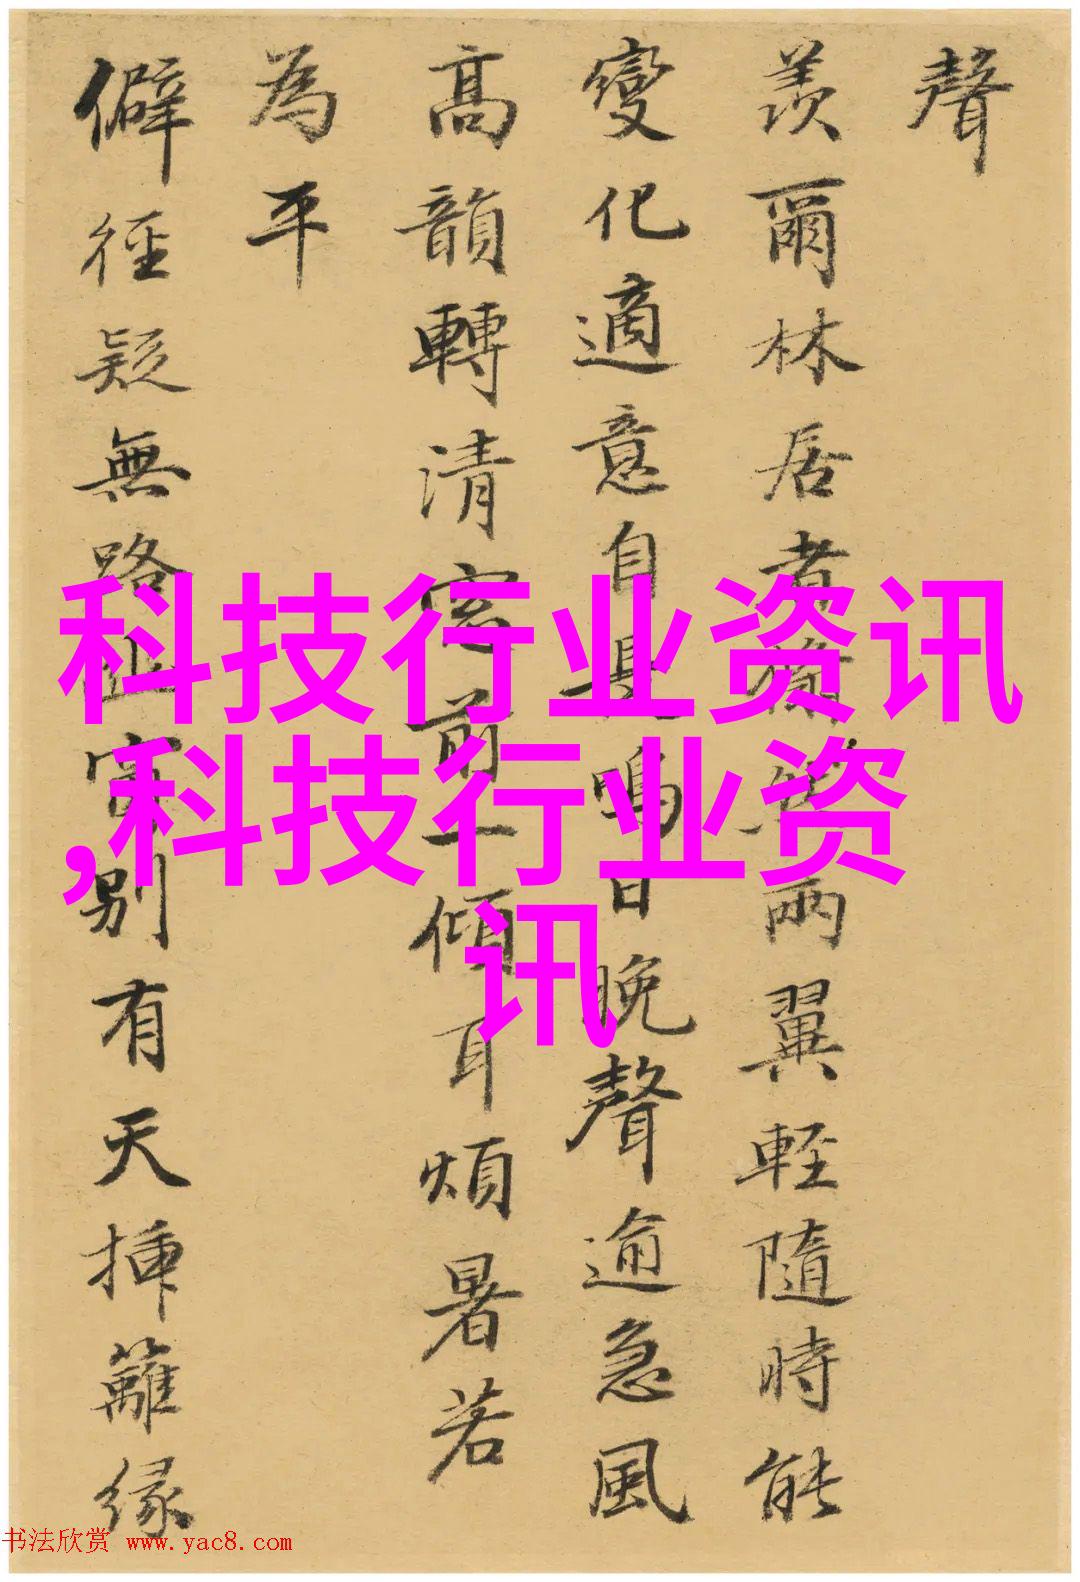 聲
羨爾林居者兩翼輕隨時能
變化適意自鳴日晚聲逾急風
高韻轉清窓前一傾耳煩暑若
為平
僻徑疑無路山家別有天插籬緣
科技行业资讯
,科技行业资
讯
书法欣赏 www.yac8.com